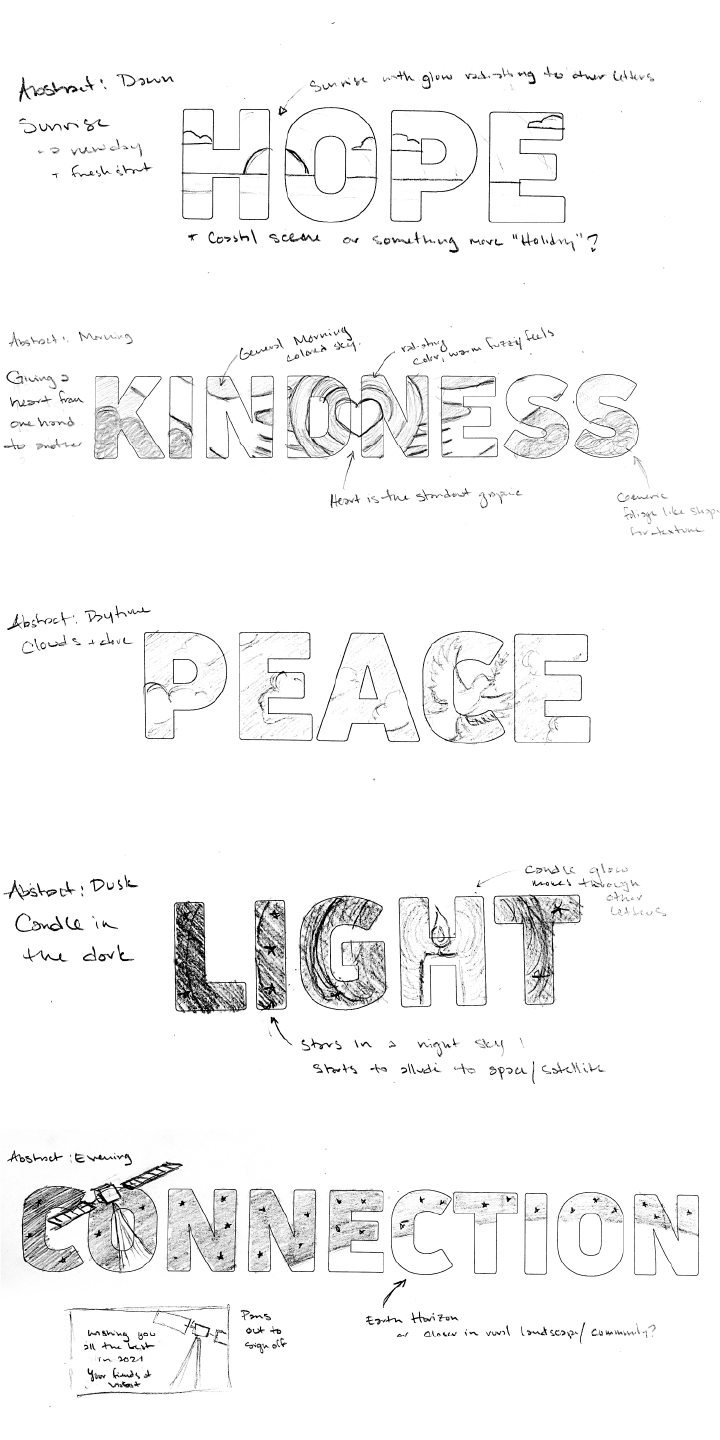 Abstract: Dawn
Sunrise with glow radiating to other letters
Sunrise
→ new day
→ fresh start
HOPE
* Coastal scene or something more "Holiday"?
Abstract: Morning
General Morning
colored sky.
radiating
color, warm fuzzy feels
Giving a
heart from
one hand
to another
KINDNESS
Heart is the standout graphic
Generic
foliage like shape
for texture
Abstract: Daytime
Clouds + dove
PEACE
Abstract: Dusk
Candle in
the dark
Candle glow
moves through
other
letters
LIGHT
Stars in a night sky!
Starts to allude to space/satellite
Abstract: Evening
CONNECTION
Earth Horizon
or closer in rural landscape/community?
Wishing you
all the best
in 2021
Your friends at
Viasat
Pans
out to
sign off